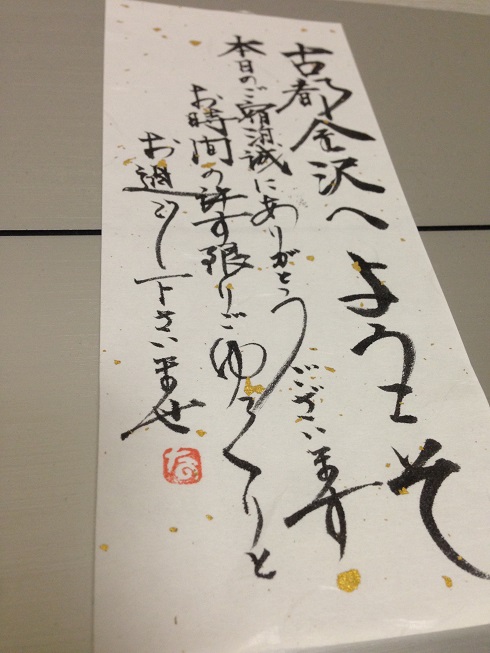 古都金沢へようこそ
本日のご宿泊誠にありがとうございます
お時間の許す限りごゆるりと
お過ごし下さいませ